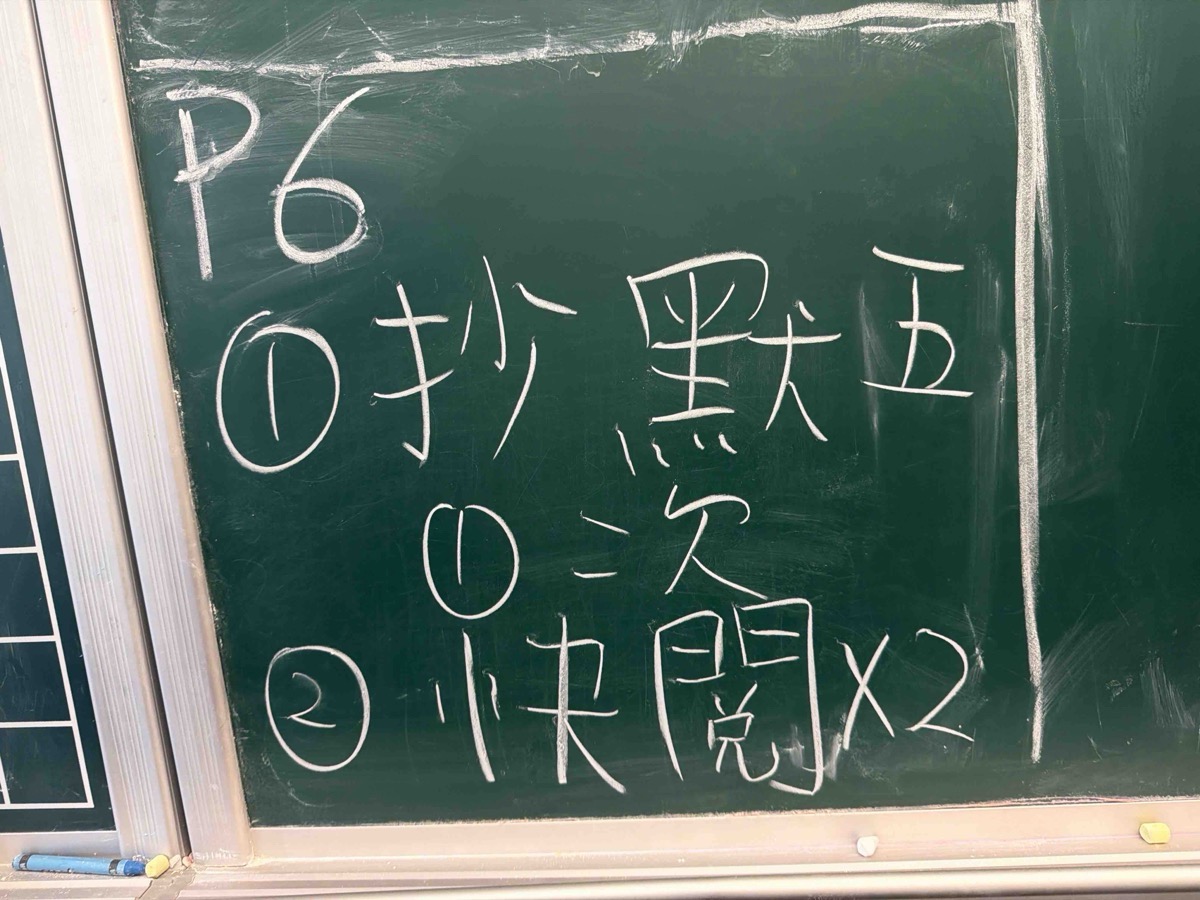 P6
① 抄 默 五
① 二次
② 快閱 x2